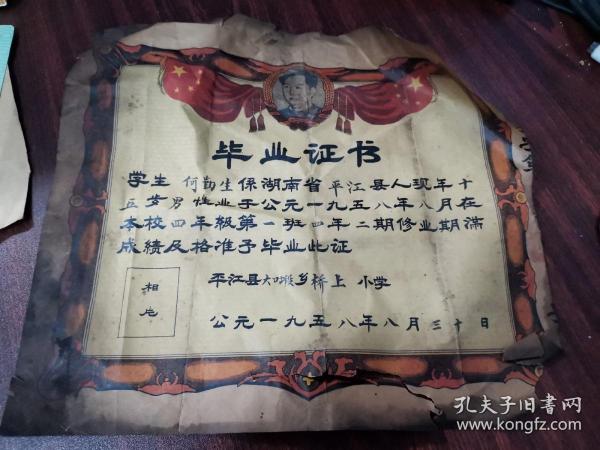 毕业证书
学生 何勤生 係湖南省平江县人现年十
五岁男性业于公元一九五八年八月在
本校四年级第一班四年二期修业期满
成绩及格准予毕业此证
平江县大 乡桥上 小学
相片
公元一九五八年八月三十日
孔夫子旧书网
www.kongfz.com